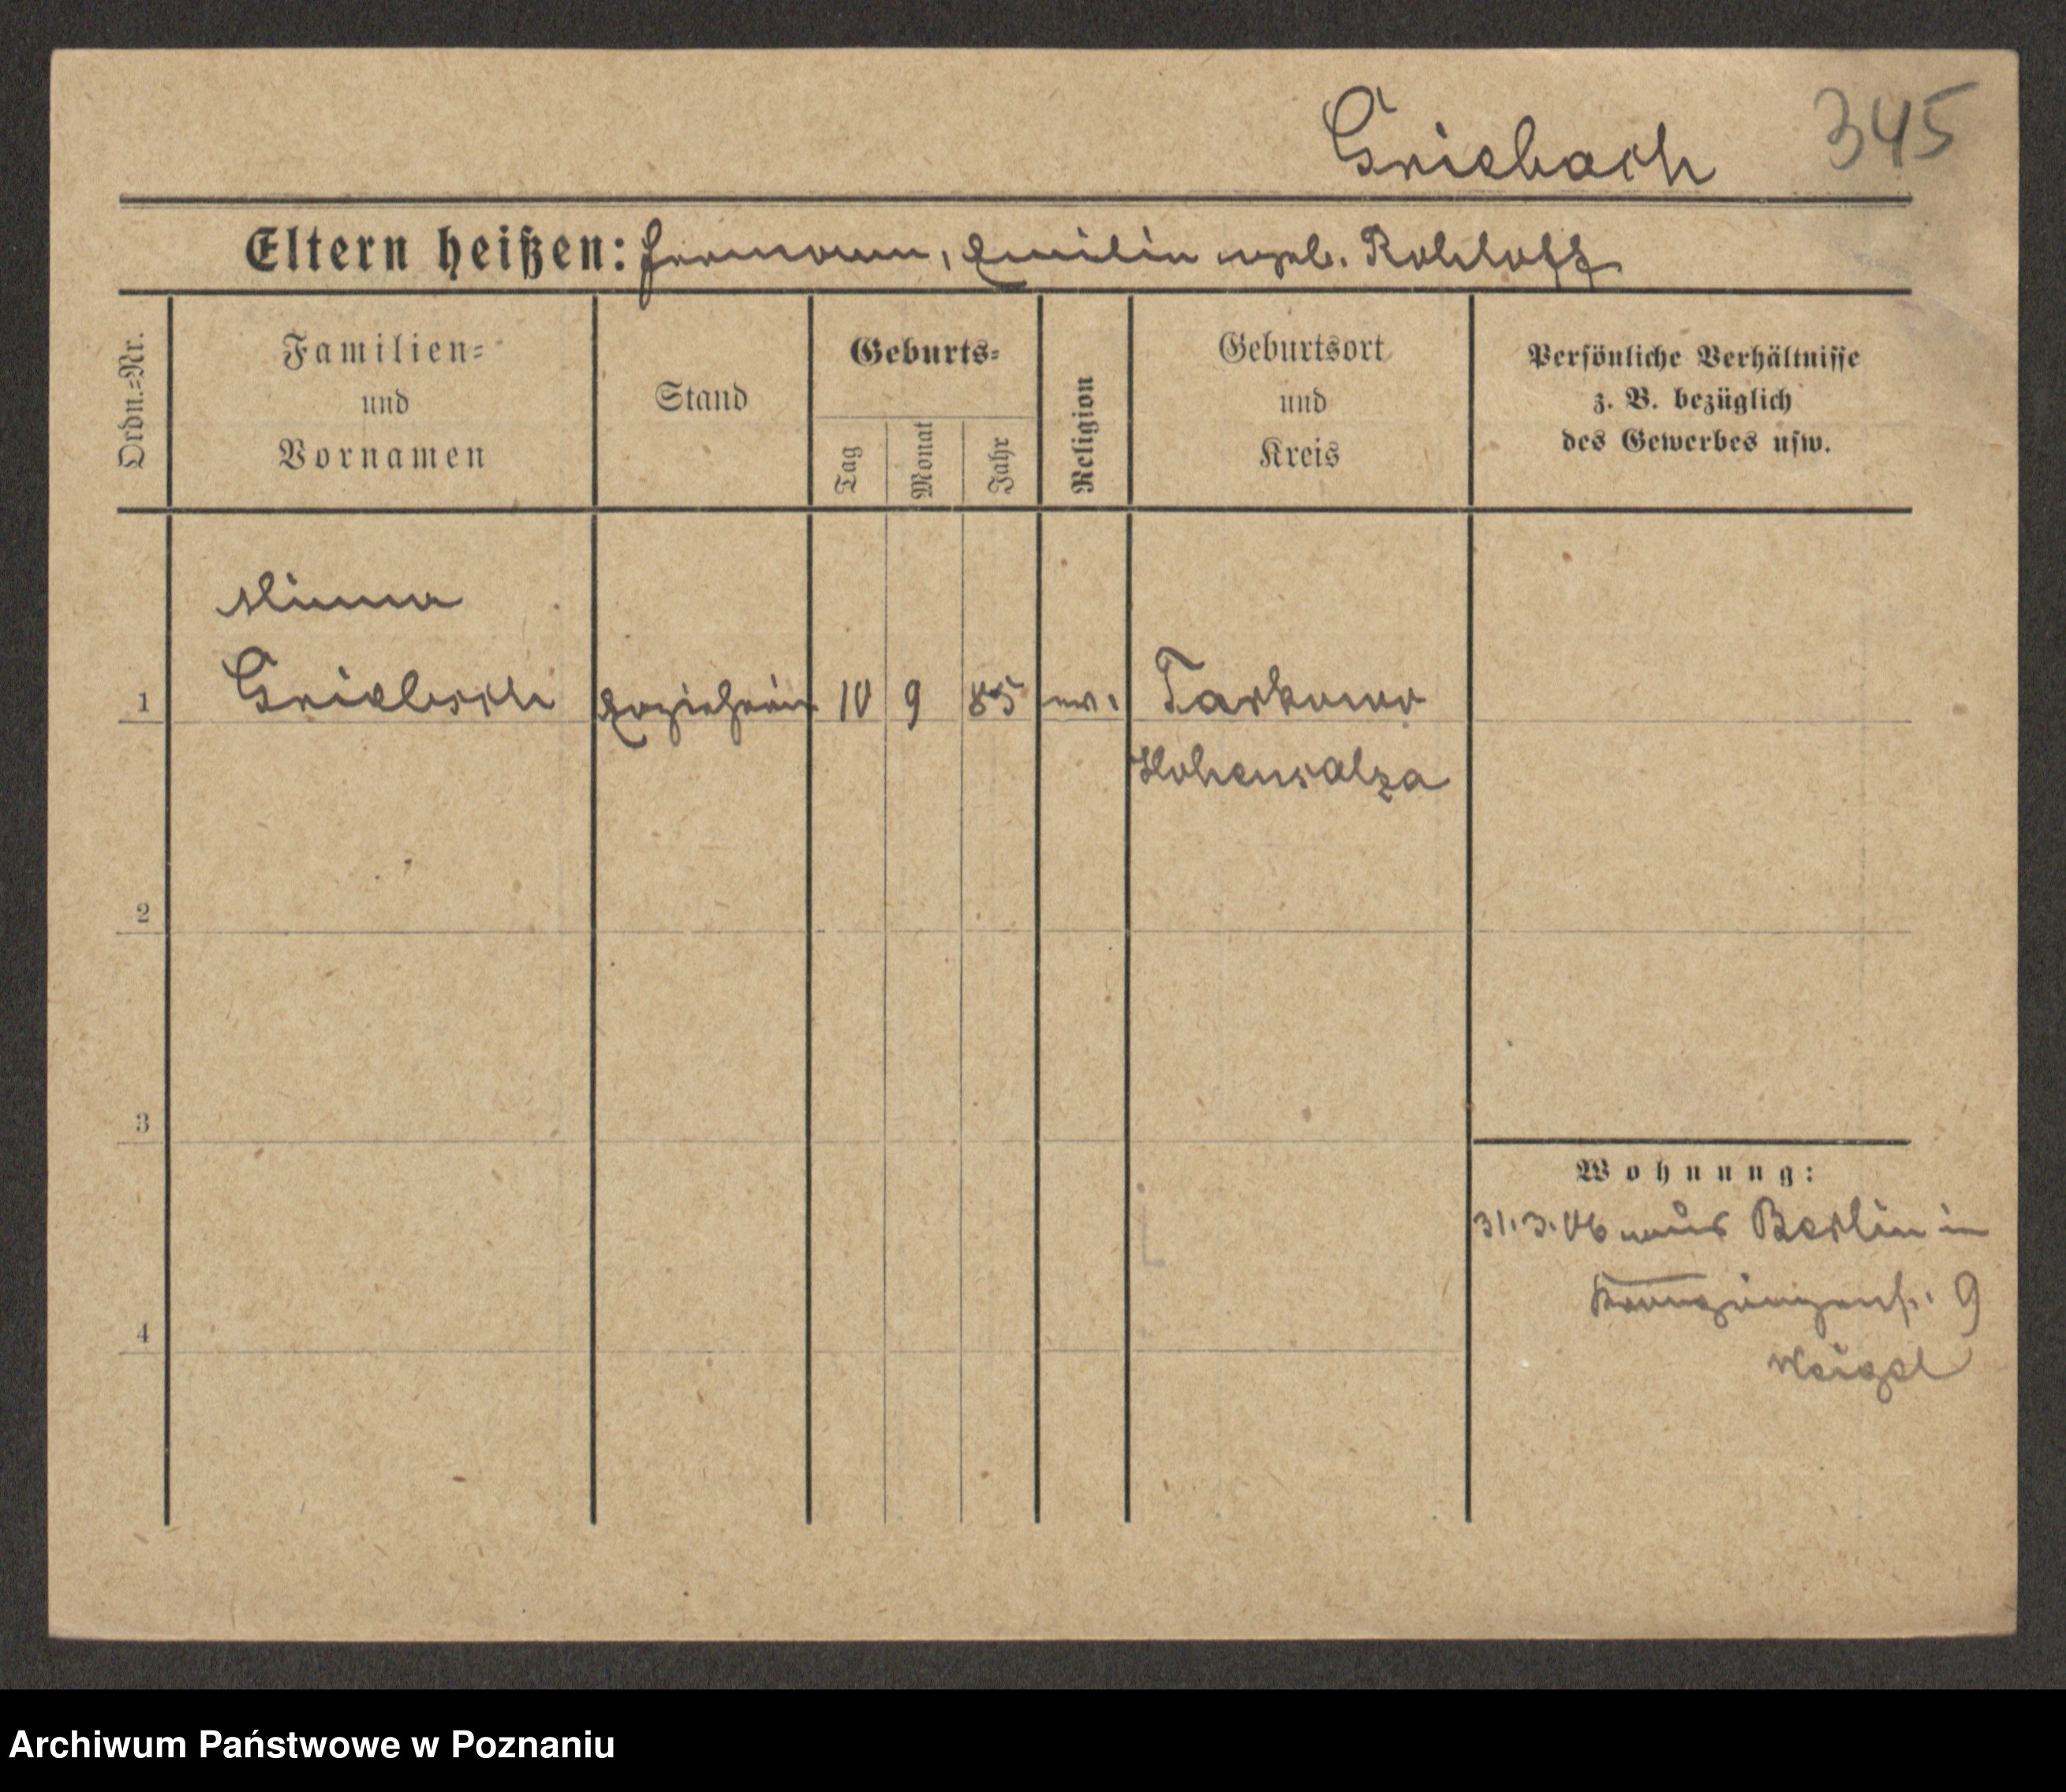 Griebach 345
Eltern heißen: Hermann, Emilie geb. Rohloff
Ordn.=Nr.
Familien=
und
Vornamen
Stand
Geburts=
Tag
Monat
Jahr
Religion
Geburtsort
und
Kreis
Persönliche Verhältnisse
z. B. bezüglich
des Gewerbes usw.
Minna
1 Griebsch Erzieherin 10 9 85 ev. Tarkowo
Hohensalza
2
3
Wohnung:
31.3.06 aus Berlin in
9
4
Weigel
Archiwum Państwowe w Poznaniu